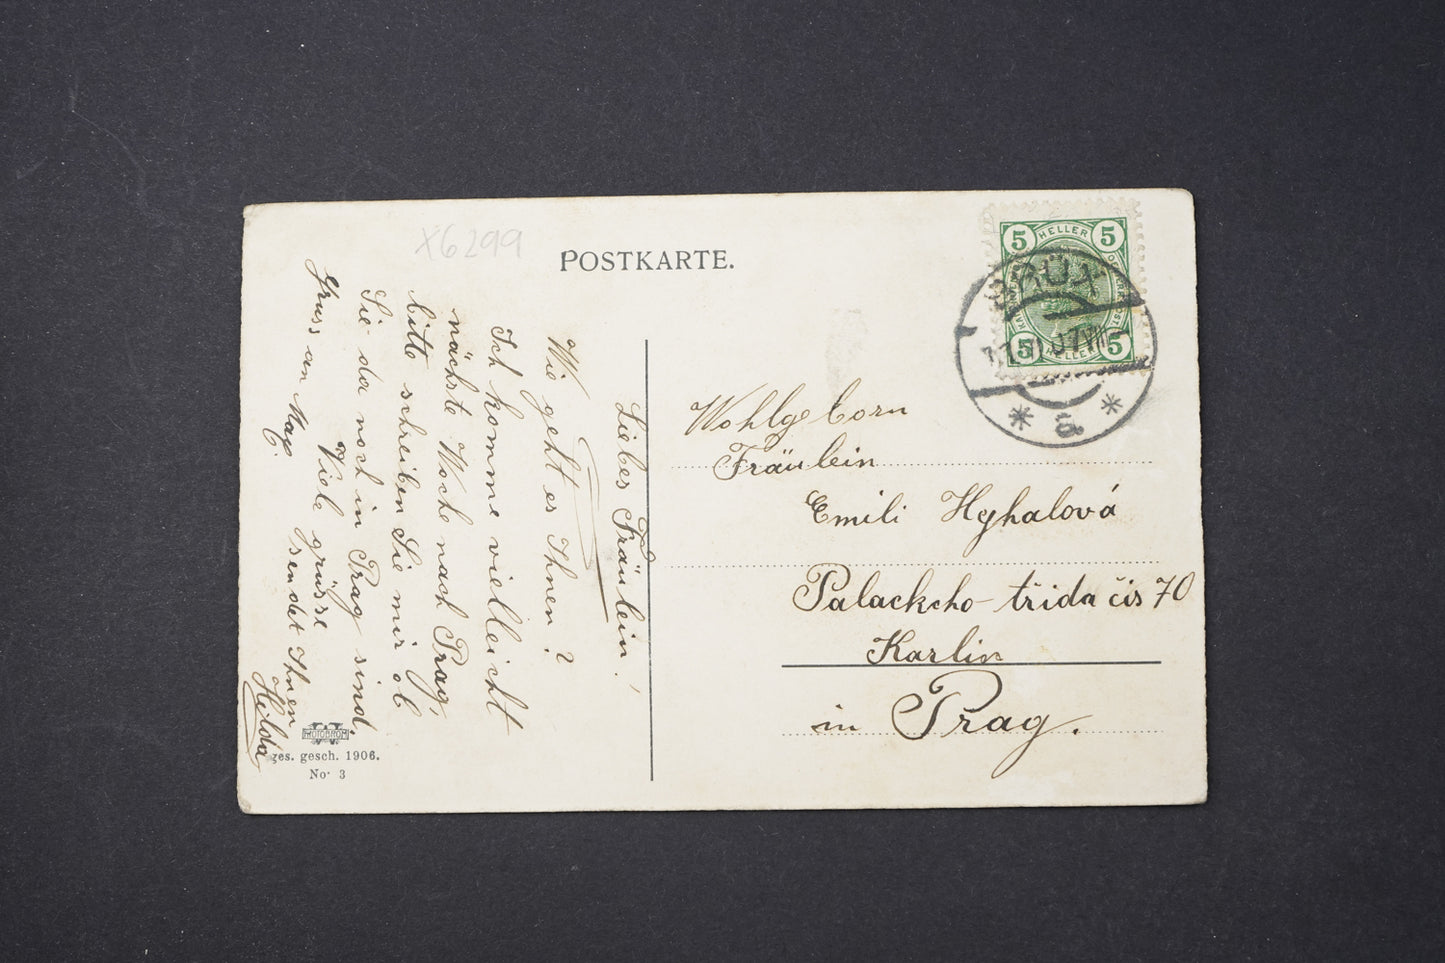 X6299
POSTKARTE.
5 HELLER 5
5 HELLER 5
BRÜX
a
Liebes Fräulein!
Wie geht es Ihnen?
Ich komme vielleicht
nächste Woche nach Prag,
bitte schreiben Sie mir ob
Sie da noch in Prag sind.
Viele grüsse
sendet Ihnen
Hilda
Gruss an
Wohlgeborn
Fräulein
Emili Hyhalová
Palackcho třida čis 70
Karlin
in Prag.
ges. gesch. 1906.
No. 3